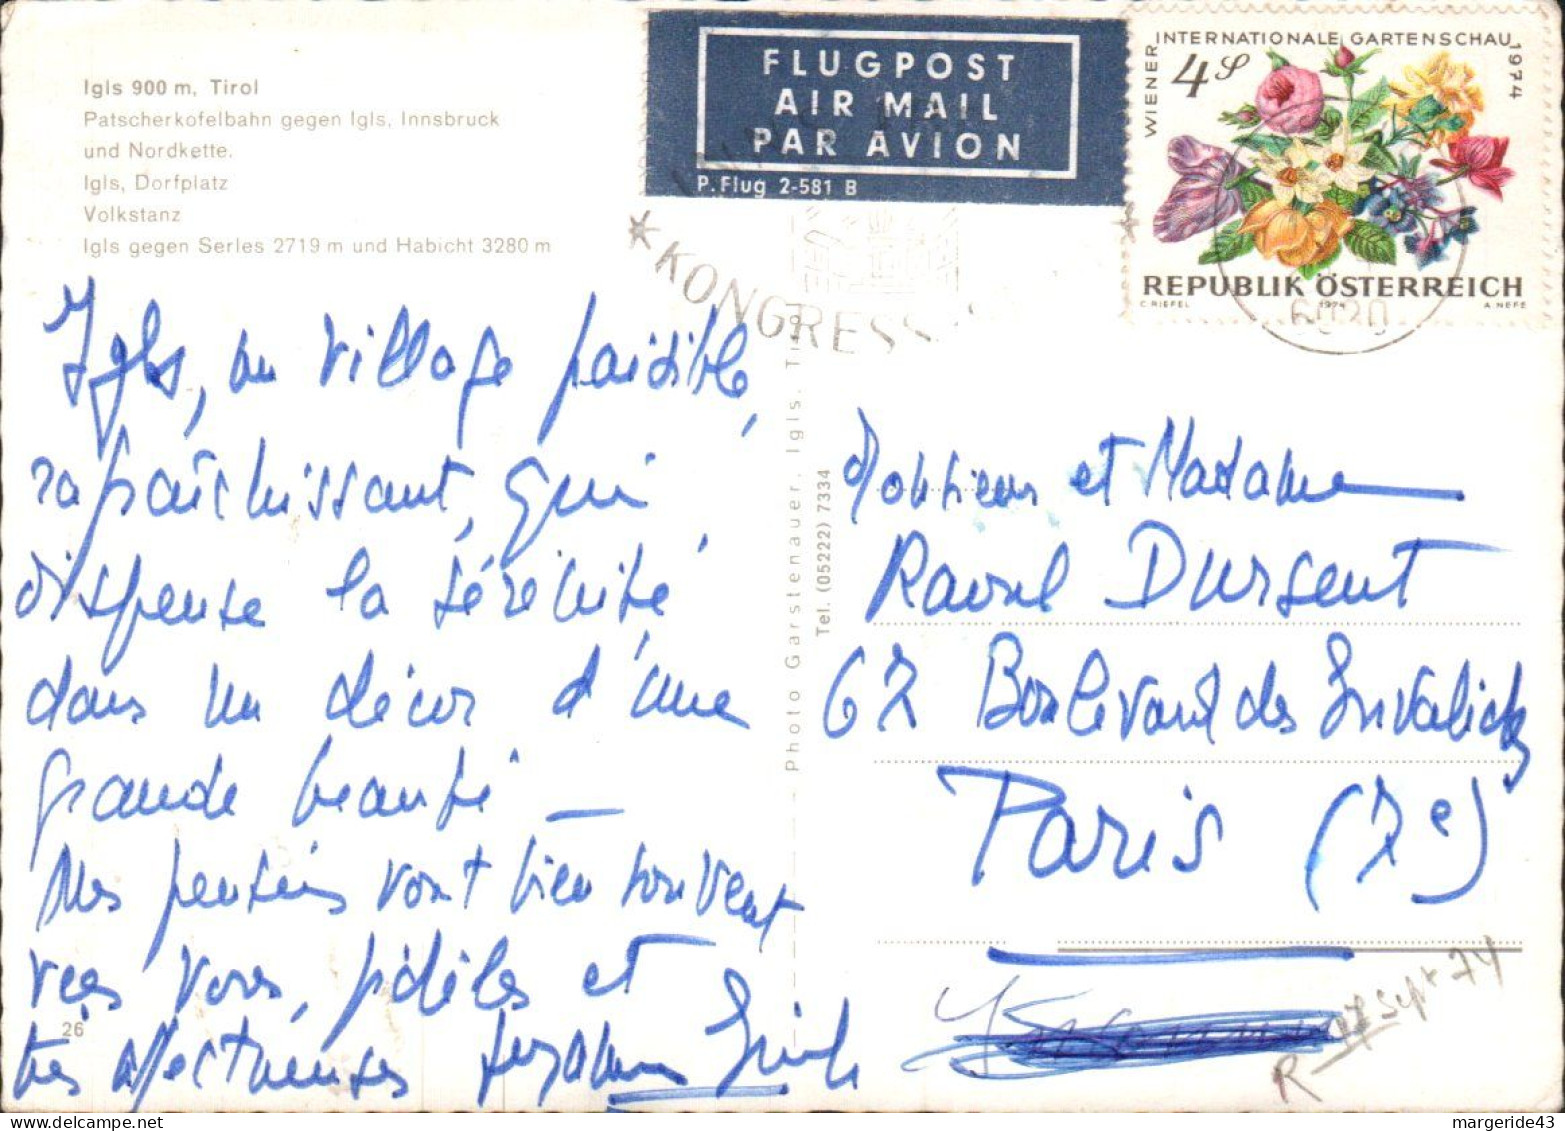 Igls 900 m, Tirol
Patscherkofelbahn gegen Igls, Innsbruck
und Nordkette.
Igls, Dorfplatz
Volkstanz
Igls gegen Serles 2719 m und Habicht 3280 m
FLUGPOST
AIR MAIL
PAR AVION
P. Flug 2-581 B
WIENER INTERNATIONALE GARTENSCHAU 1974
4 S
REPUBLIK ÖSTERREICH
C. RIEFEL 1974 A. NEFE
* KONGRESS *
6020
Igls, un village paisible,
rafraîchissant, qui
dispense la sérénité,
dans un décor d'une
grande beauté —
Mes pensées vont bien souvent
vers vous, fidèles et
très affectueuses
26
Photo Garstenauer, Igls, Tirol
Tel. (05222) 7334
Monsieur et Madame
Raoul Dursent
67 Boulevard des Invalides
Paris (7e)
R 27 Sept 74
margeride43